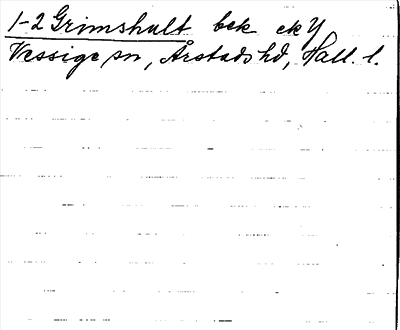 1-2 Grimshult bek ek Y
Vessige sn, Årstads hd, Hall. l.